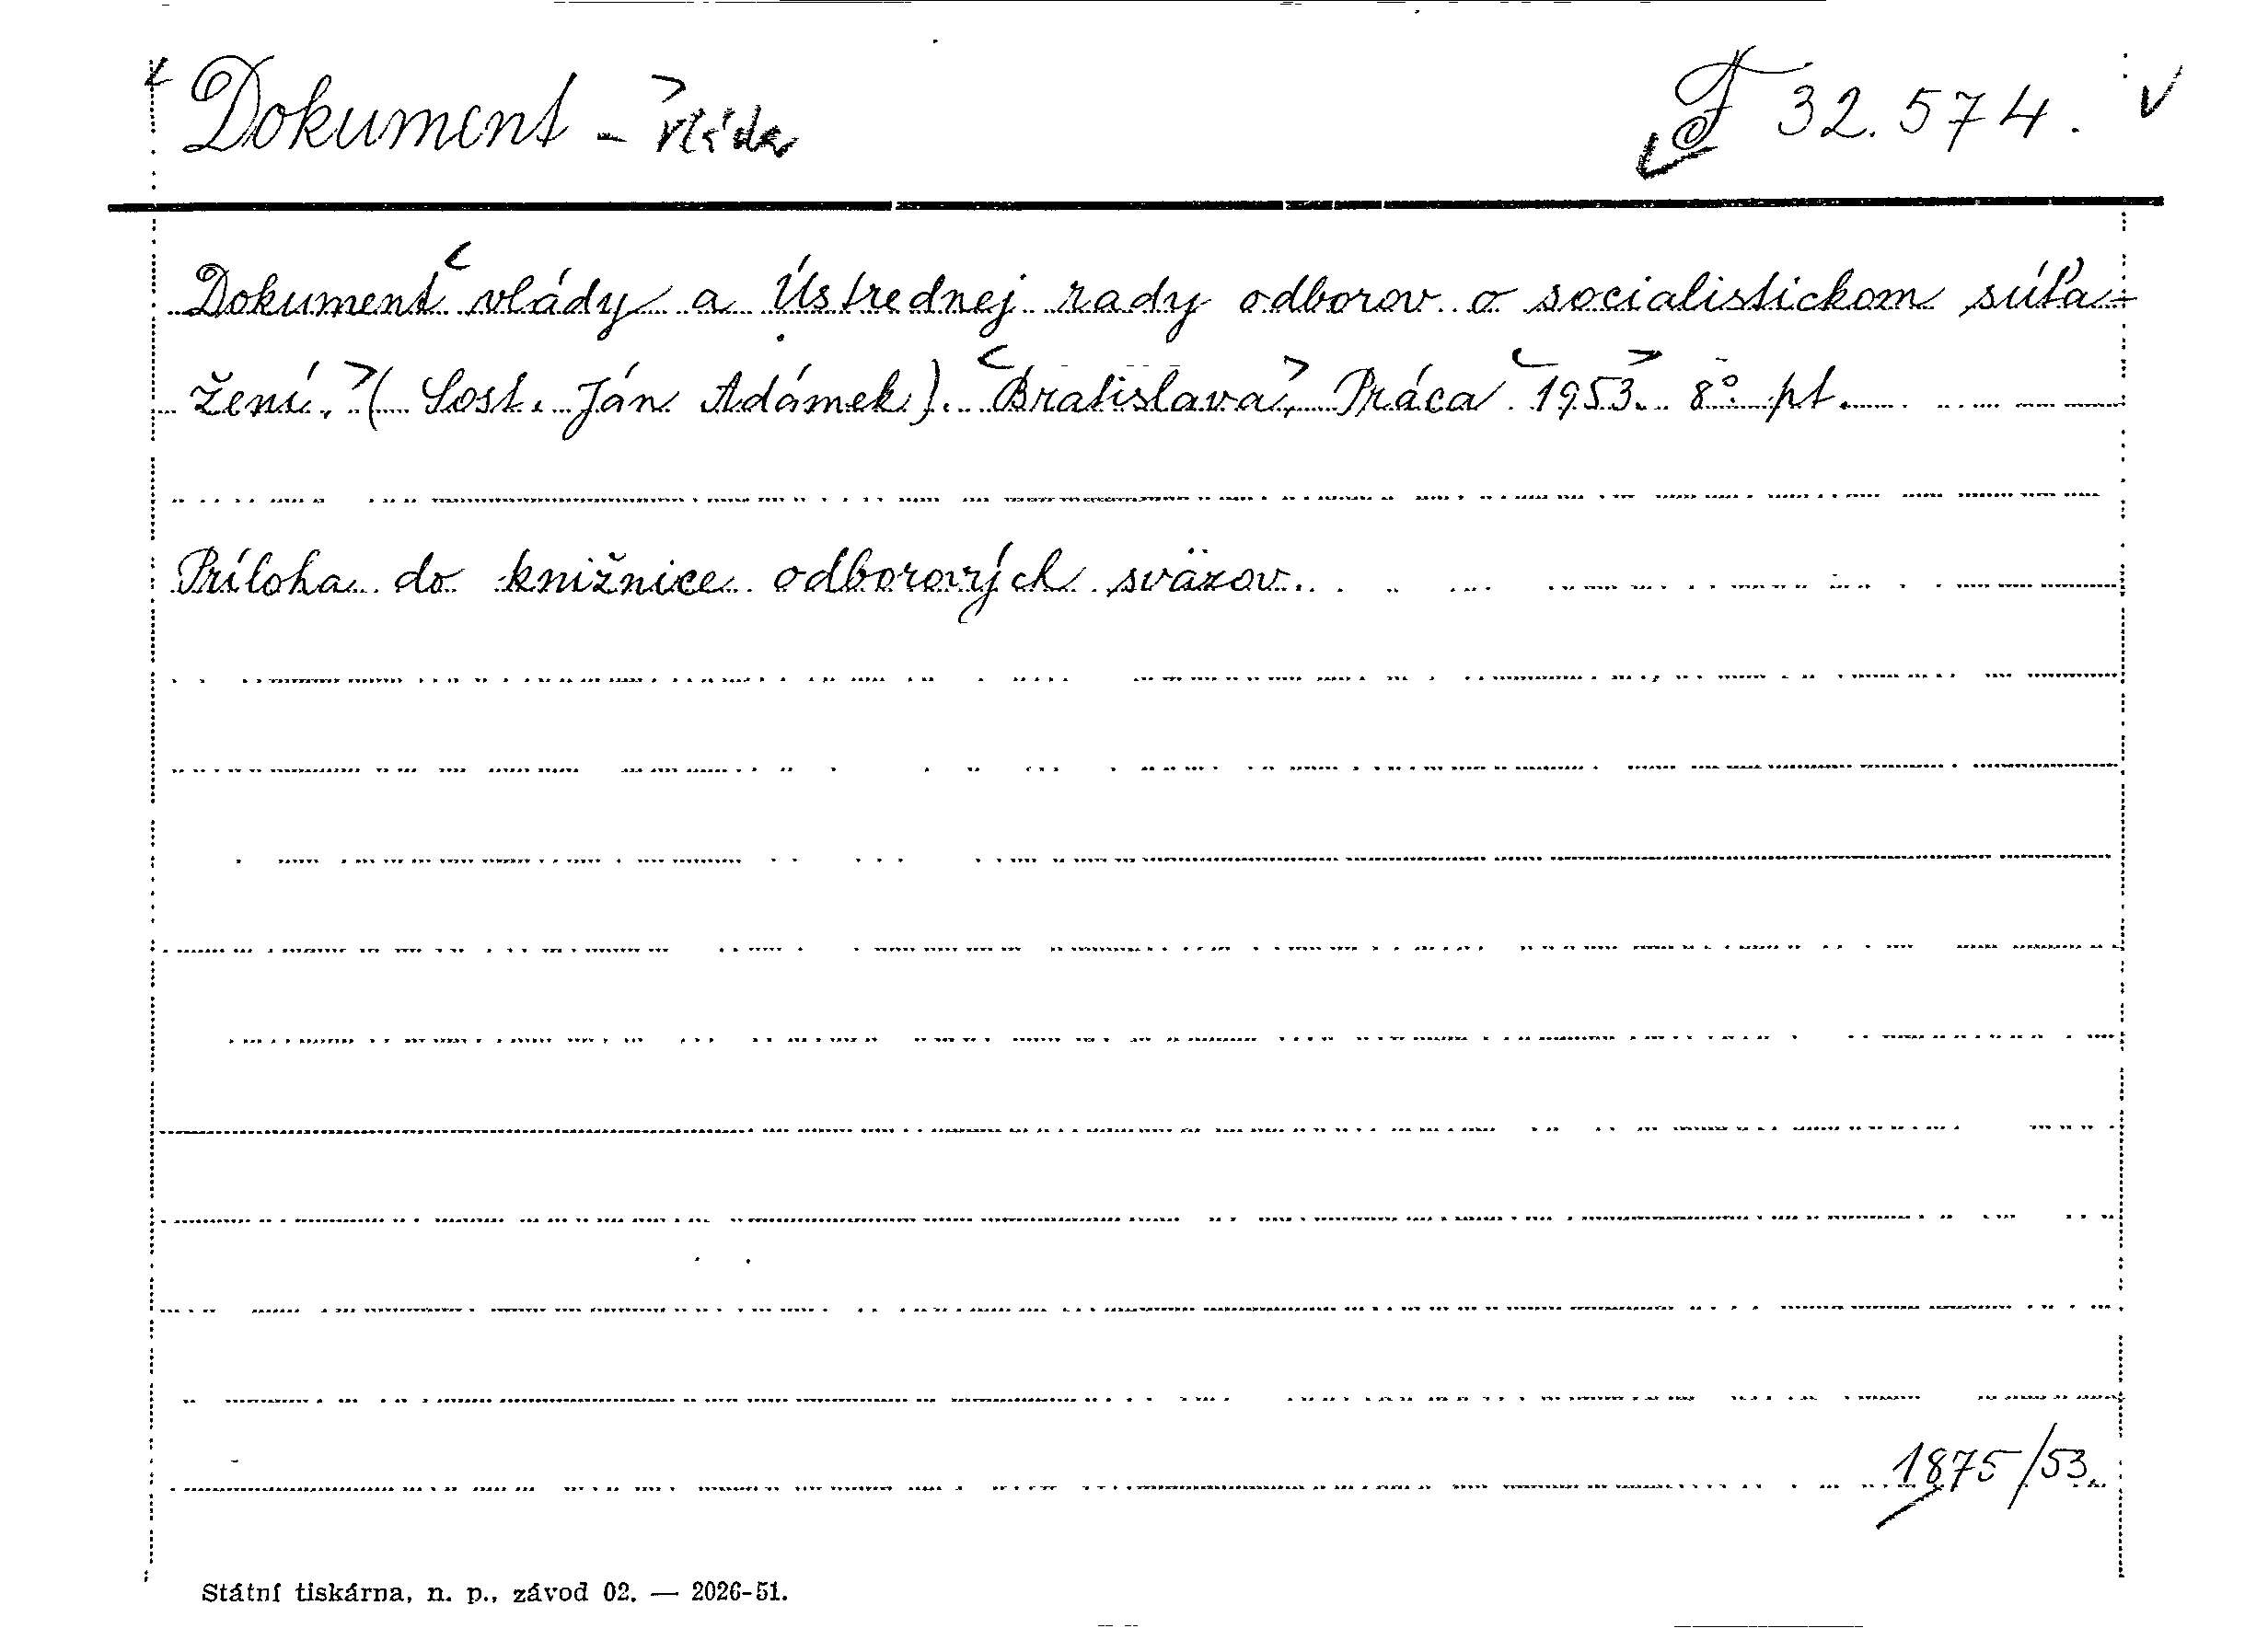 Dokument - vláda F 32.574.
Dokument vlády a Ústrednej rady odborov o socialistickom súťa-
žení. (Sost. Ján Adámek). Bratislava, Práca 1953. 8° pt.
Príloha do knižnice odborových sväzov.
1875/53.
Státní tiskárna, n. p., závod 02. — 2026-51.